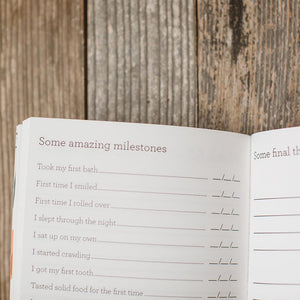 Some amazing milestones
Took my first bath __/__/__
First time I smiled __/__/__
First time I rolled over __/__/__
I slept through the night __/__/__
I sat up on my own __/__/__
I started crawling __/__/__
I got my first tooth __/__/__
Tasted solid food for the first time __/__/__
Some final th